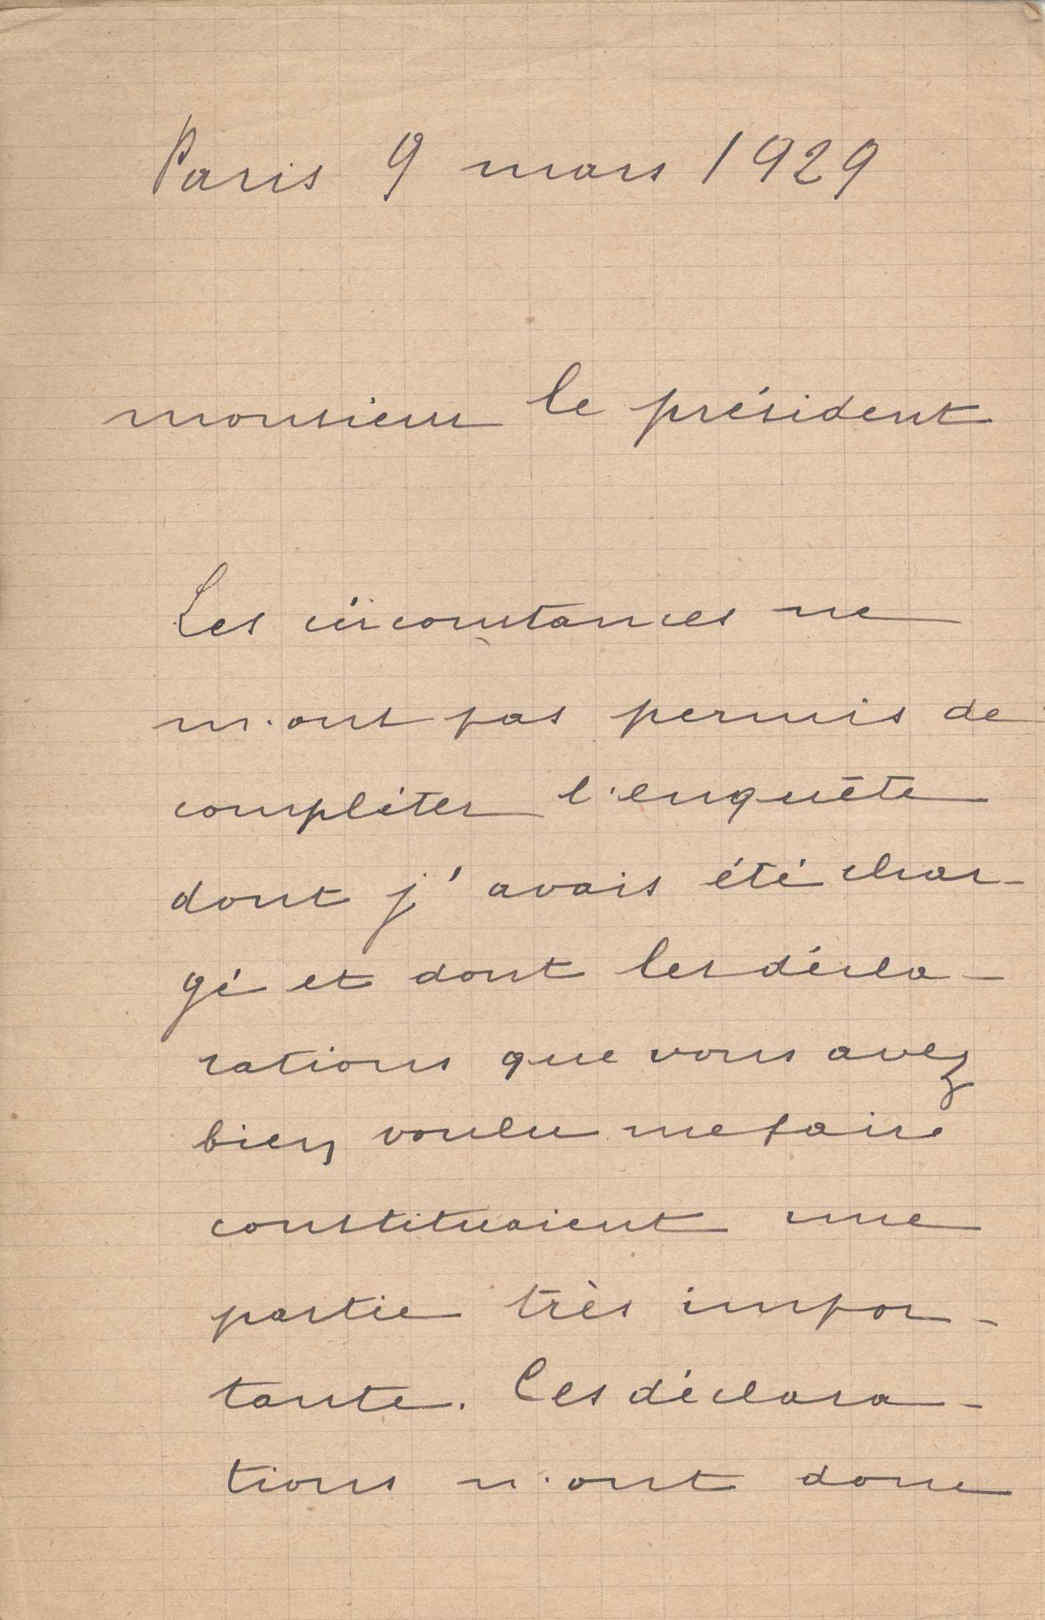 Paris 9 mars 1929
monsieur le président
Les circonstances ne
m'ont pas permis de
compléter l'enquête
dont j'avais été char-
gé et dont les décla-
rations que vous avez
bien voulu me faire
constituaient une
partie très impor-
tante. Ces déclara-
tions n'ont donc